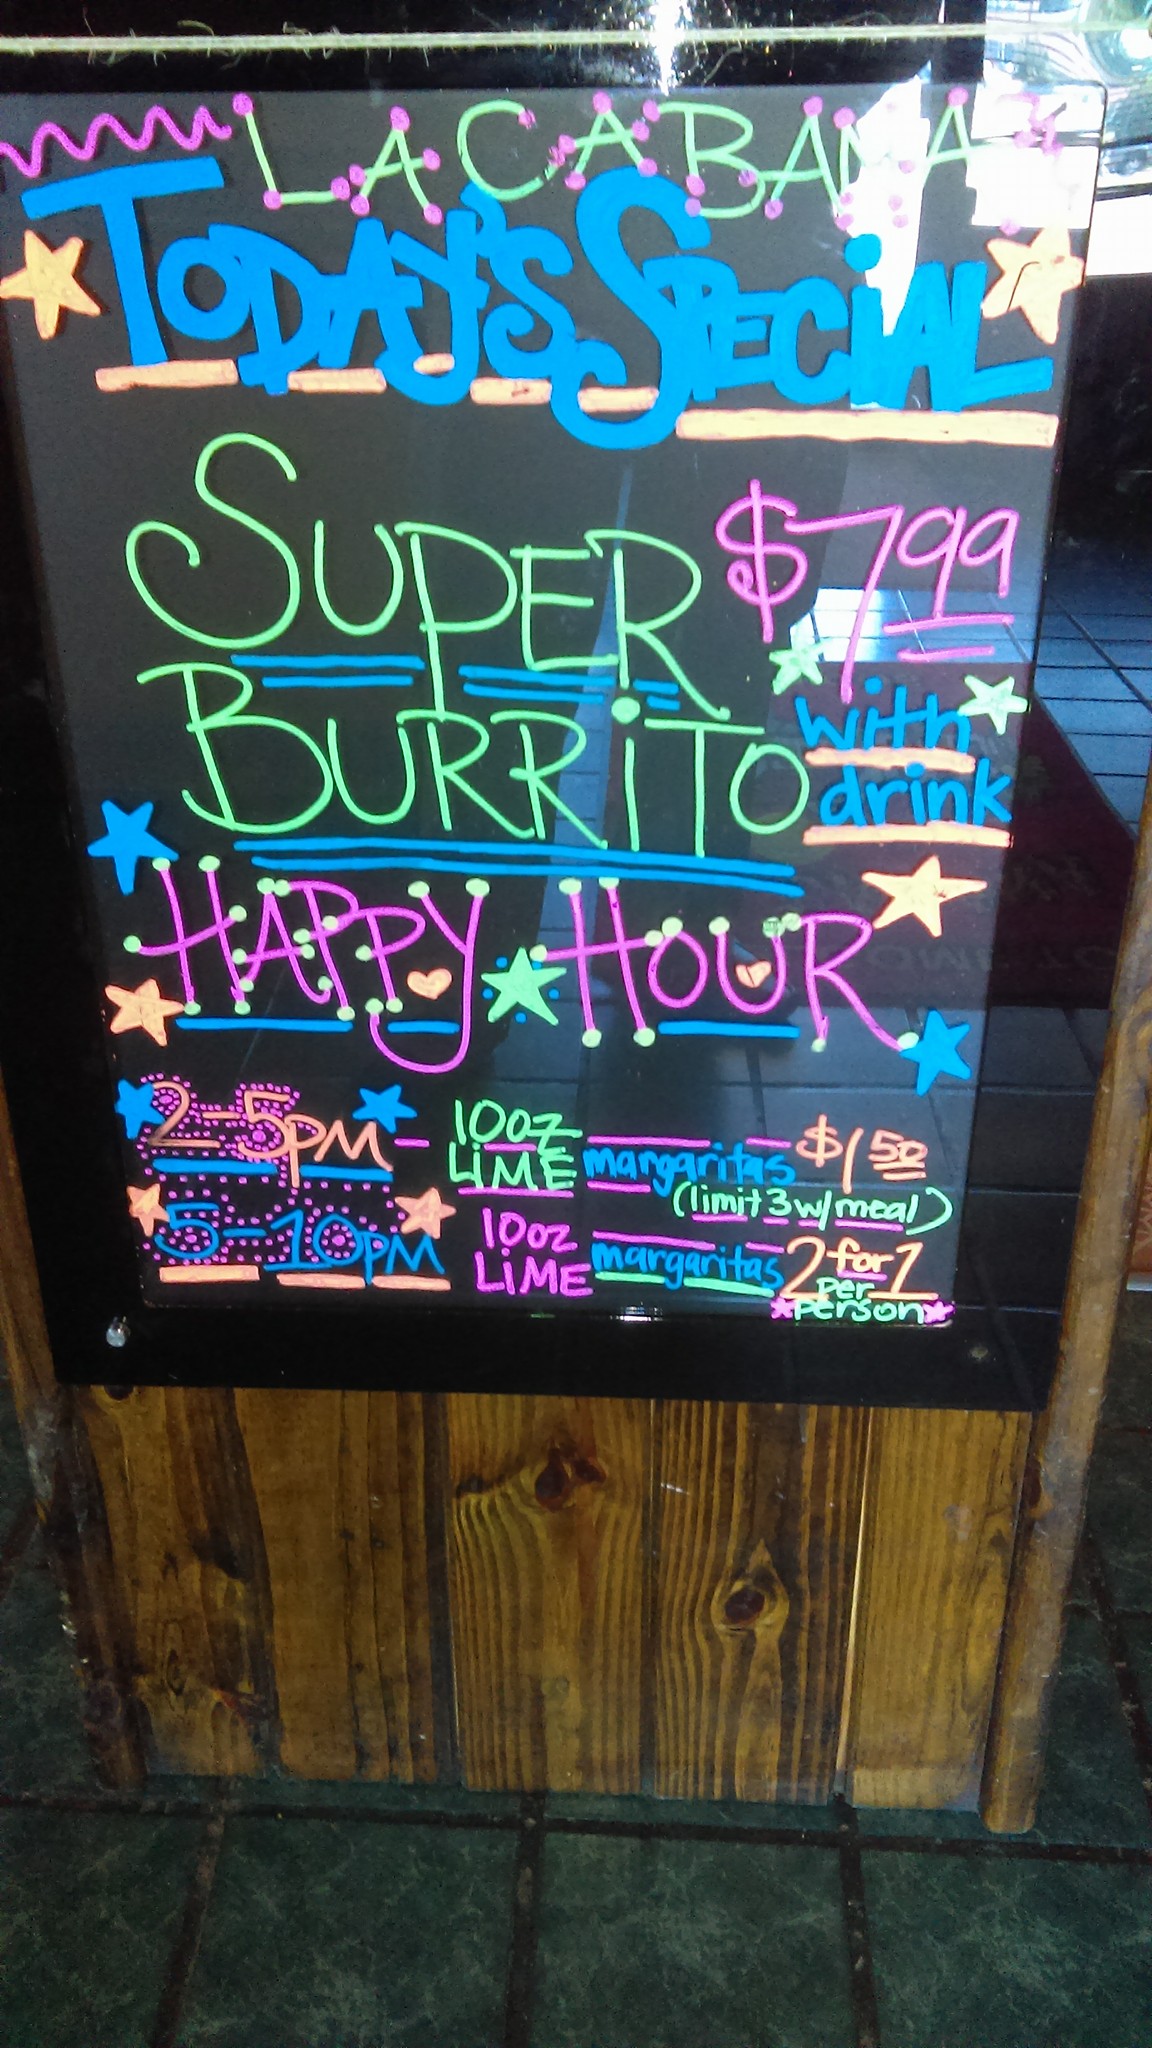 LA CABANA
TODAY'S SPECIAL
SUPER $7.99
BURRITO with drink
HAPPY HOUR
2-5PM - 10oz LIME margaritas $1.50
(limit 3 w/ meal)
5-10PM 10oz LIME margaritas 2 for 1
per
person